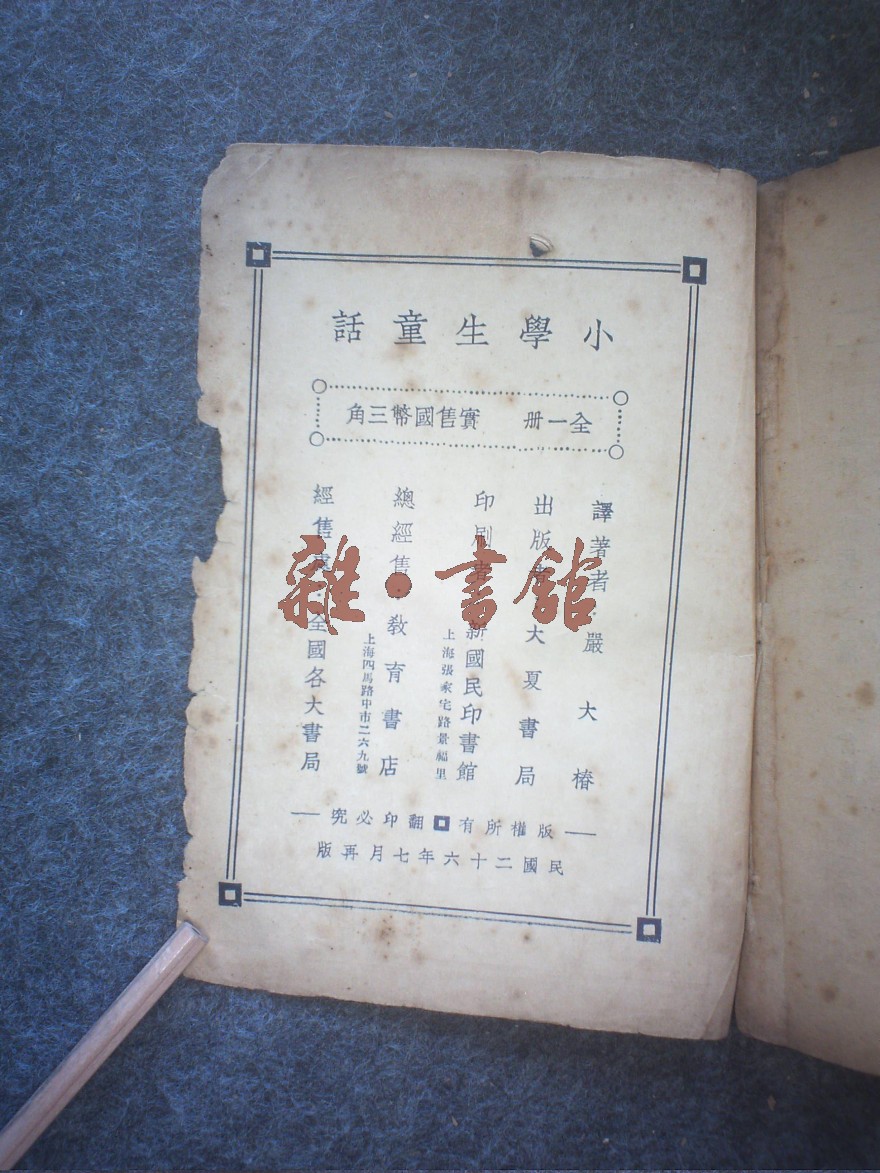 小學生童話
全一冊 實售國幣三角
譯著者：嚴大椿
出版者 大夏書局
印刷者 新國民印書館
上海張家宅路景福里
總經售 教育書店
上海四馬路中市二六九號
經售處：全國各大書局
版權所有 翻印必究
民國二十六年七月再版
雜·書館